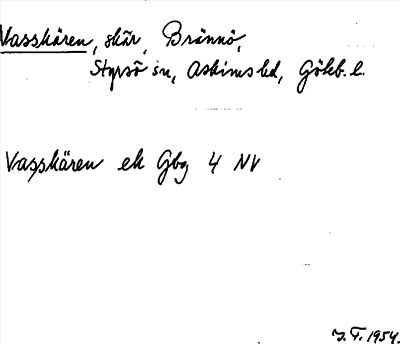 Vasskären, skär, Brännö,
Styrsö sn, Askims hd, Göteb. l.
Vasskären ek Gbg 4 NV
J. F. 1954.